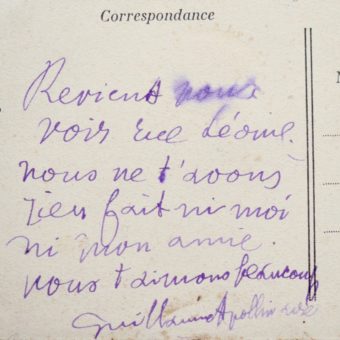 Correspondance
Revient nous
voir rue Léonie.
nous ne t'avons
rien fait ni moi
ni mon amie.
nous t'aimons beaucoup
Guillaume Apollinaire